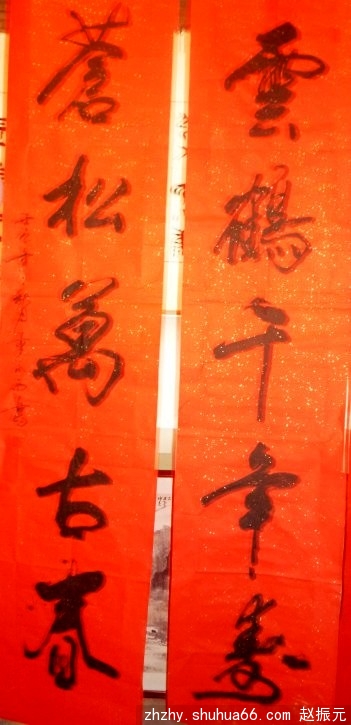 雲鶴千年壽
蒼松萬古春
zhzhy.shuhua66.com 赵振元